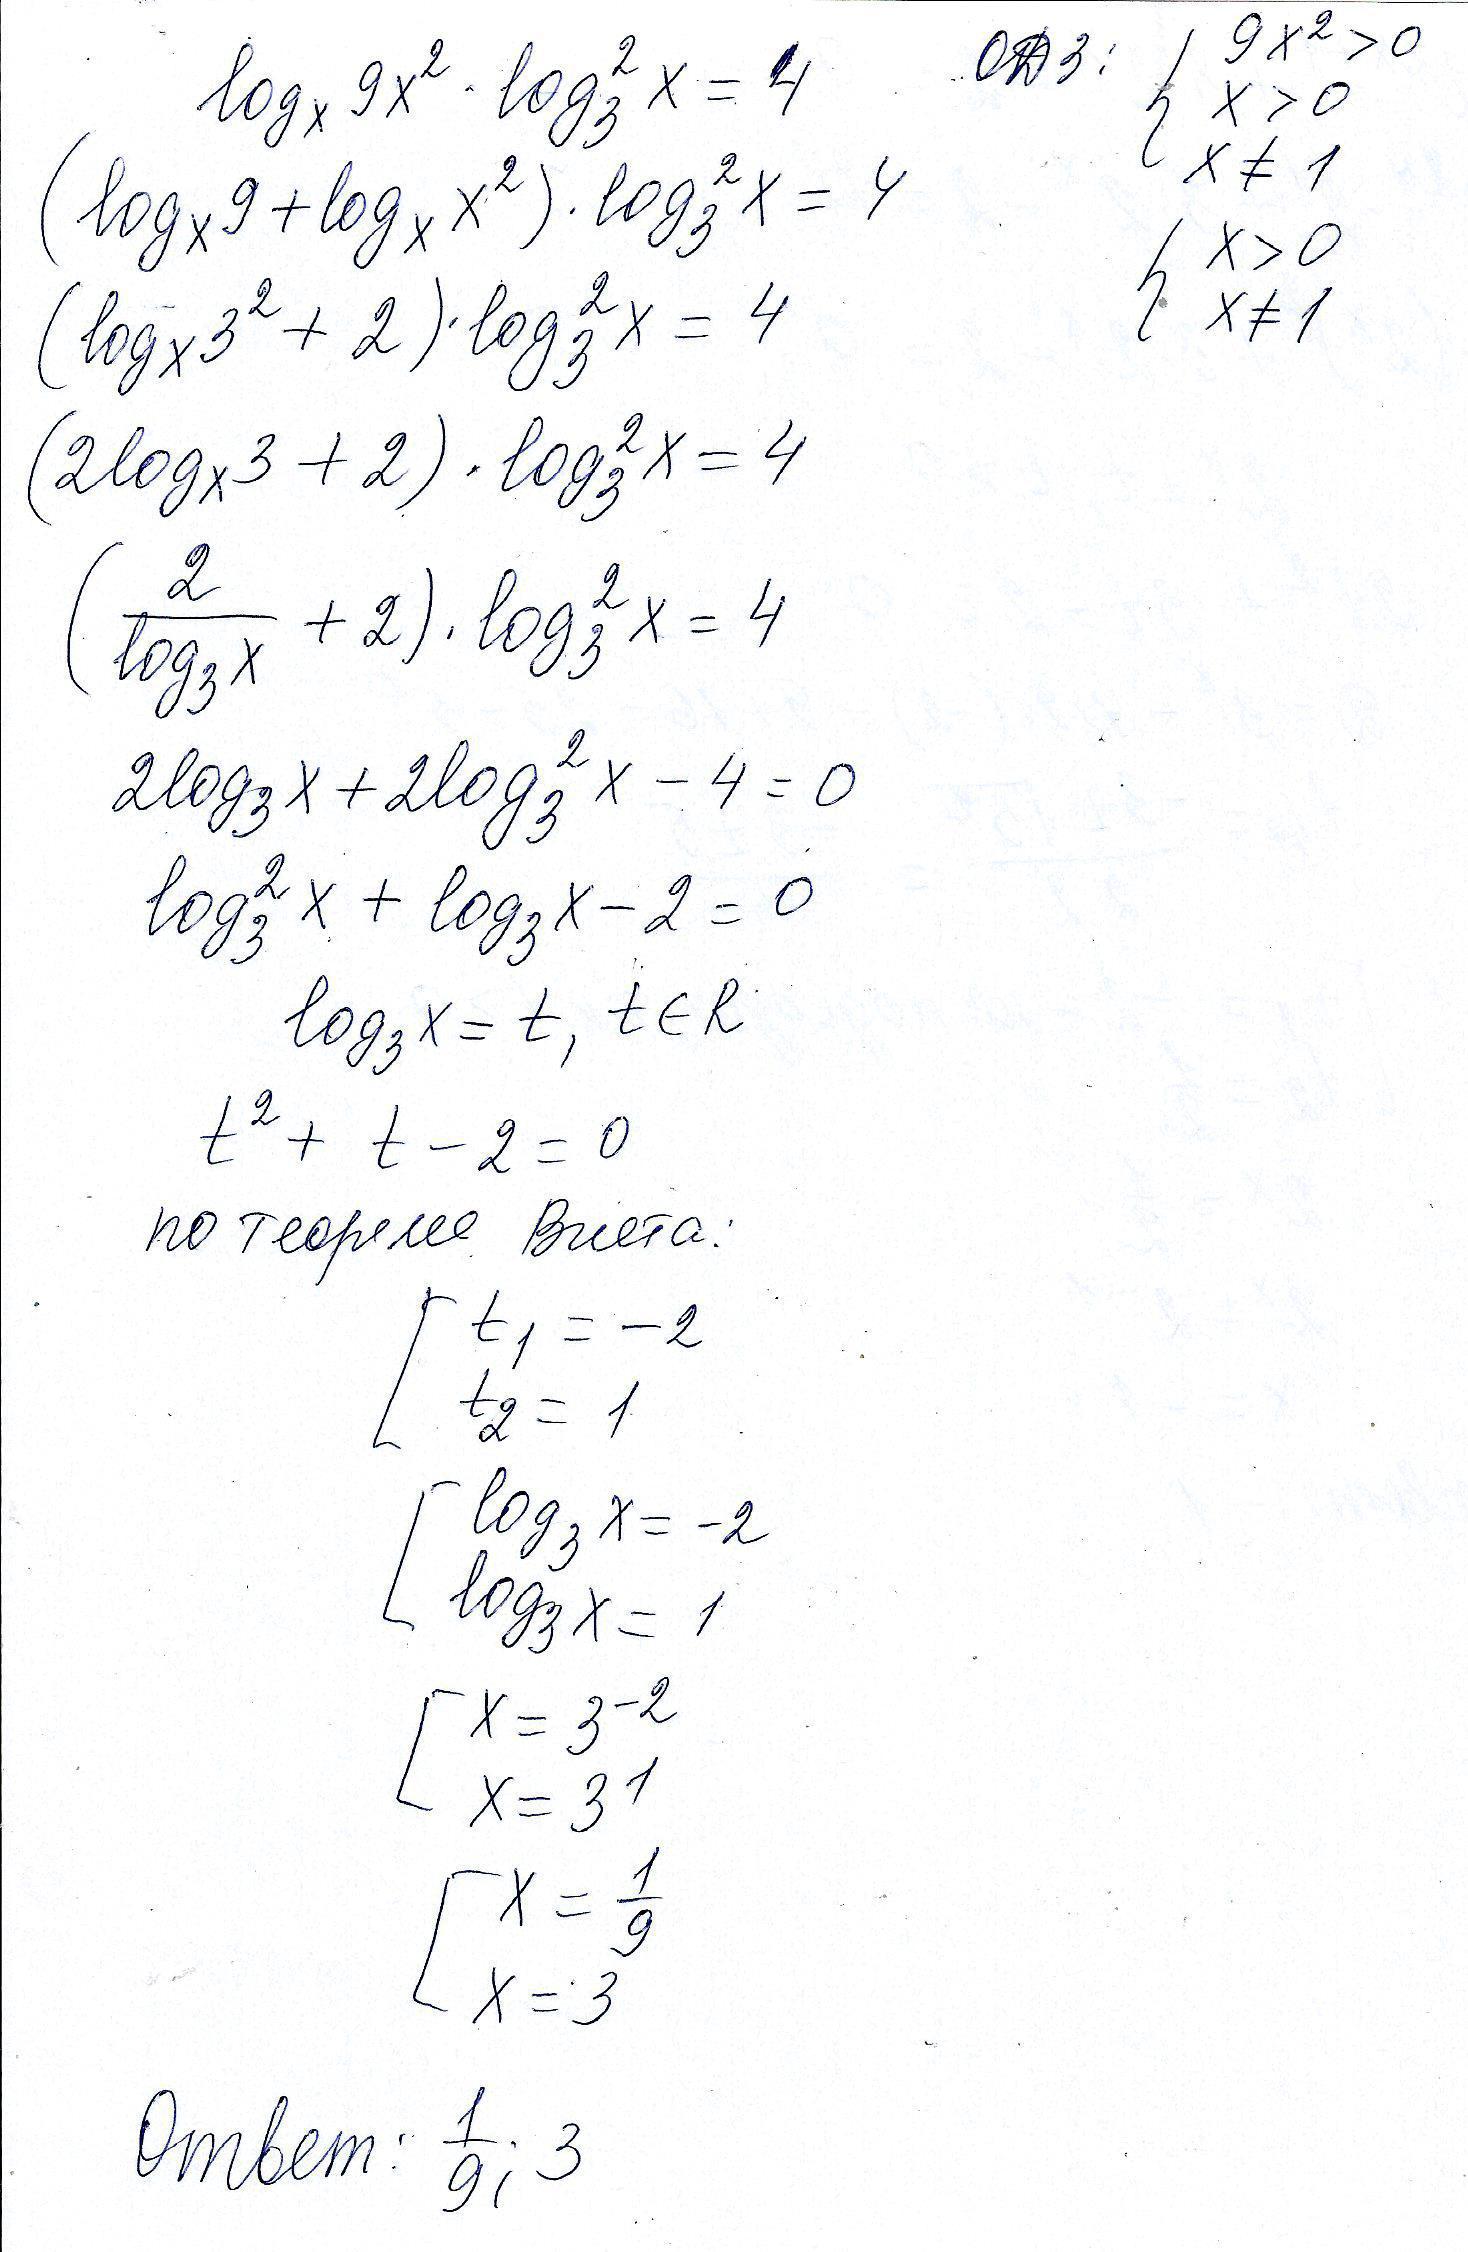 log_x 9x² · log₃² x = 4
ОДЗ: { 9x² > 0
x > 0
x ≠ 1
(log_x 9 + log_x x²) · log₃² x = 4
{ x > 0
x ≠ 1
(log_x 3² + 2) · log₃² x = 4
(2log_x 3 + 2) · log₃² x = 4
(2/log₃ x + 2) · log₃² x = 4
2log₃ x + 2log₃² x − 4 = 0
log₃² x + log₃ x − 2 = 0
log₃ x = t, t ∈ R
t² + t − 2 = 0
по теореме Виета:
[ t₁ = −2
t₂ = 1
[ log₃ x = −2
log₃ x = 1
[ x = 3⁻²
x = 3¹
[ x = 1/9
x = 3
Ответ: 1/9; 3